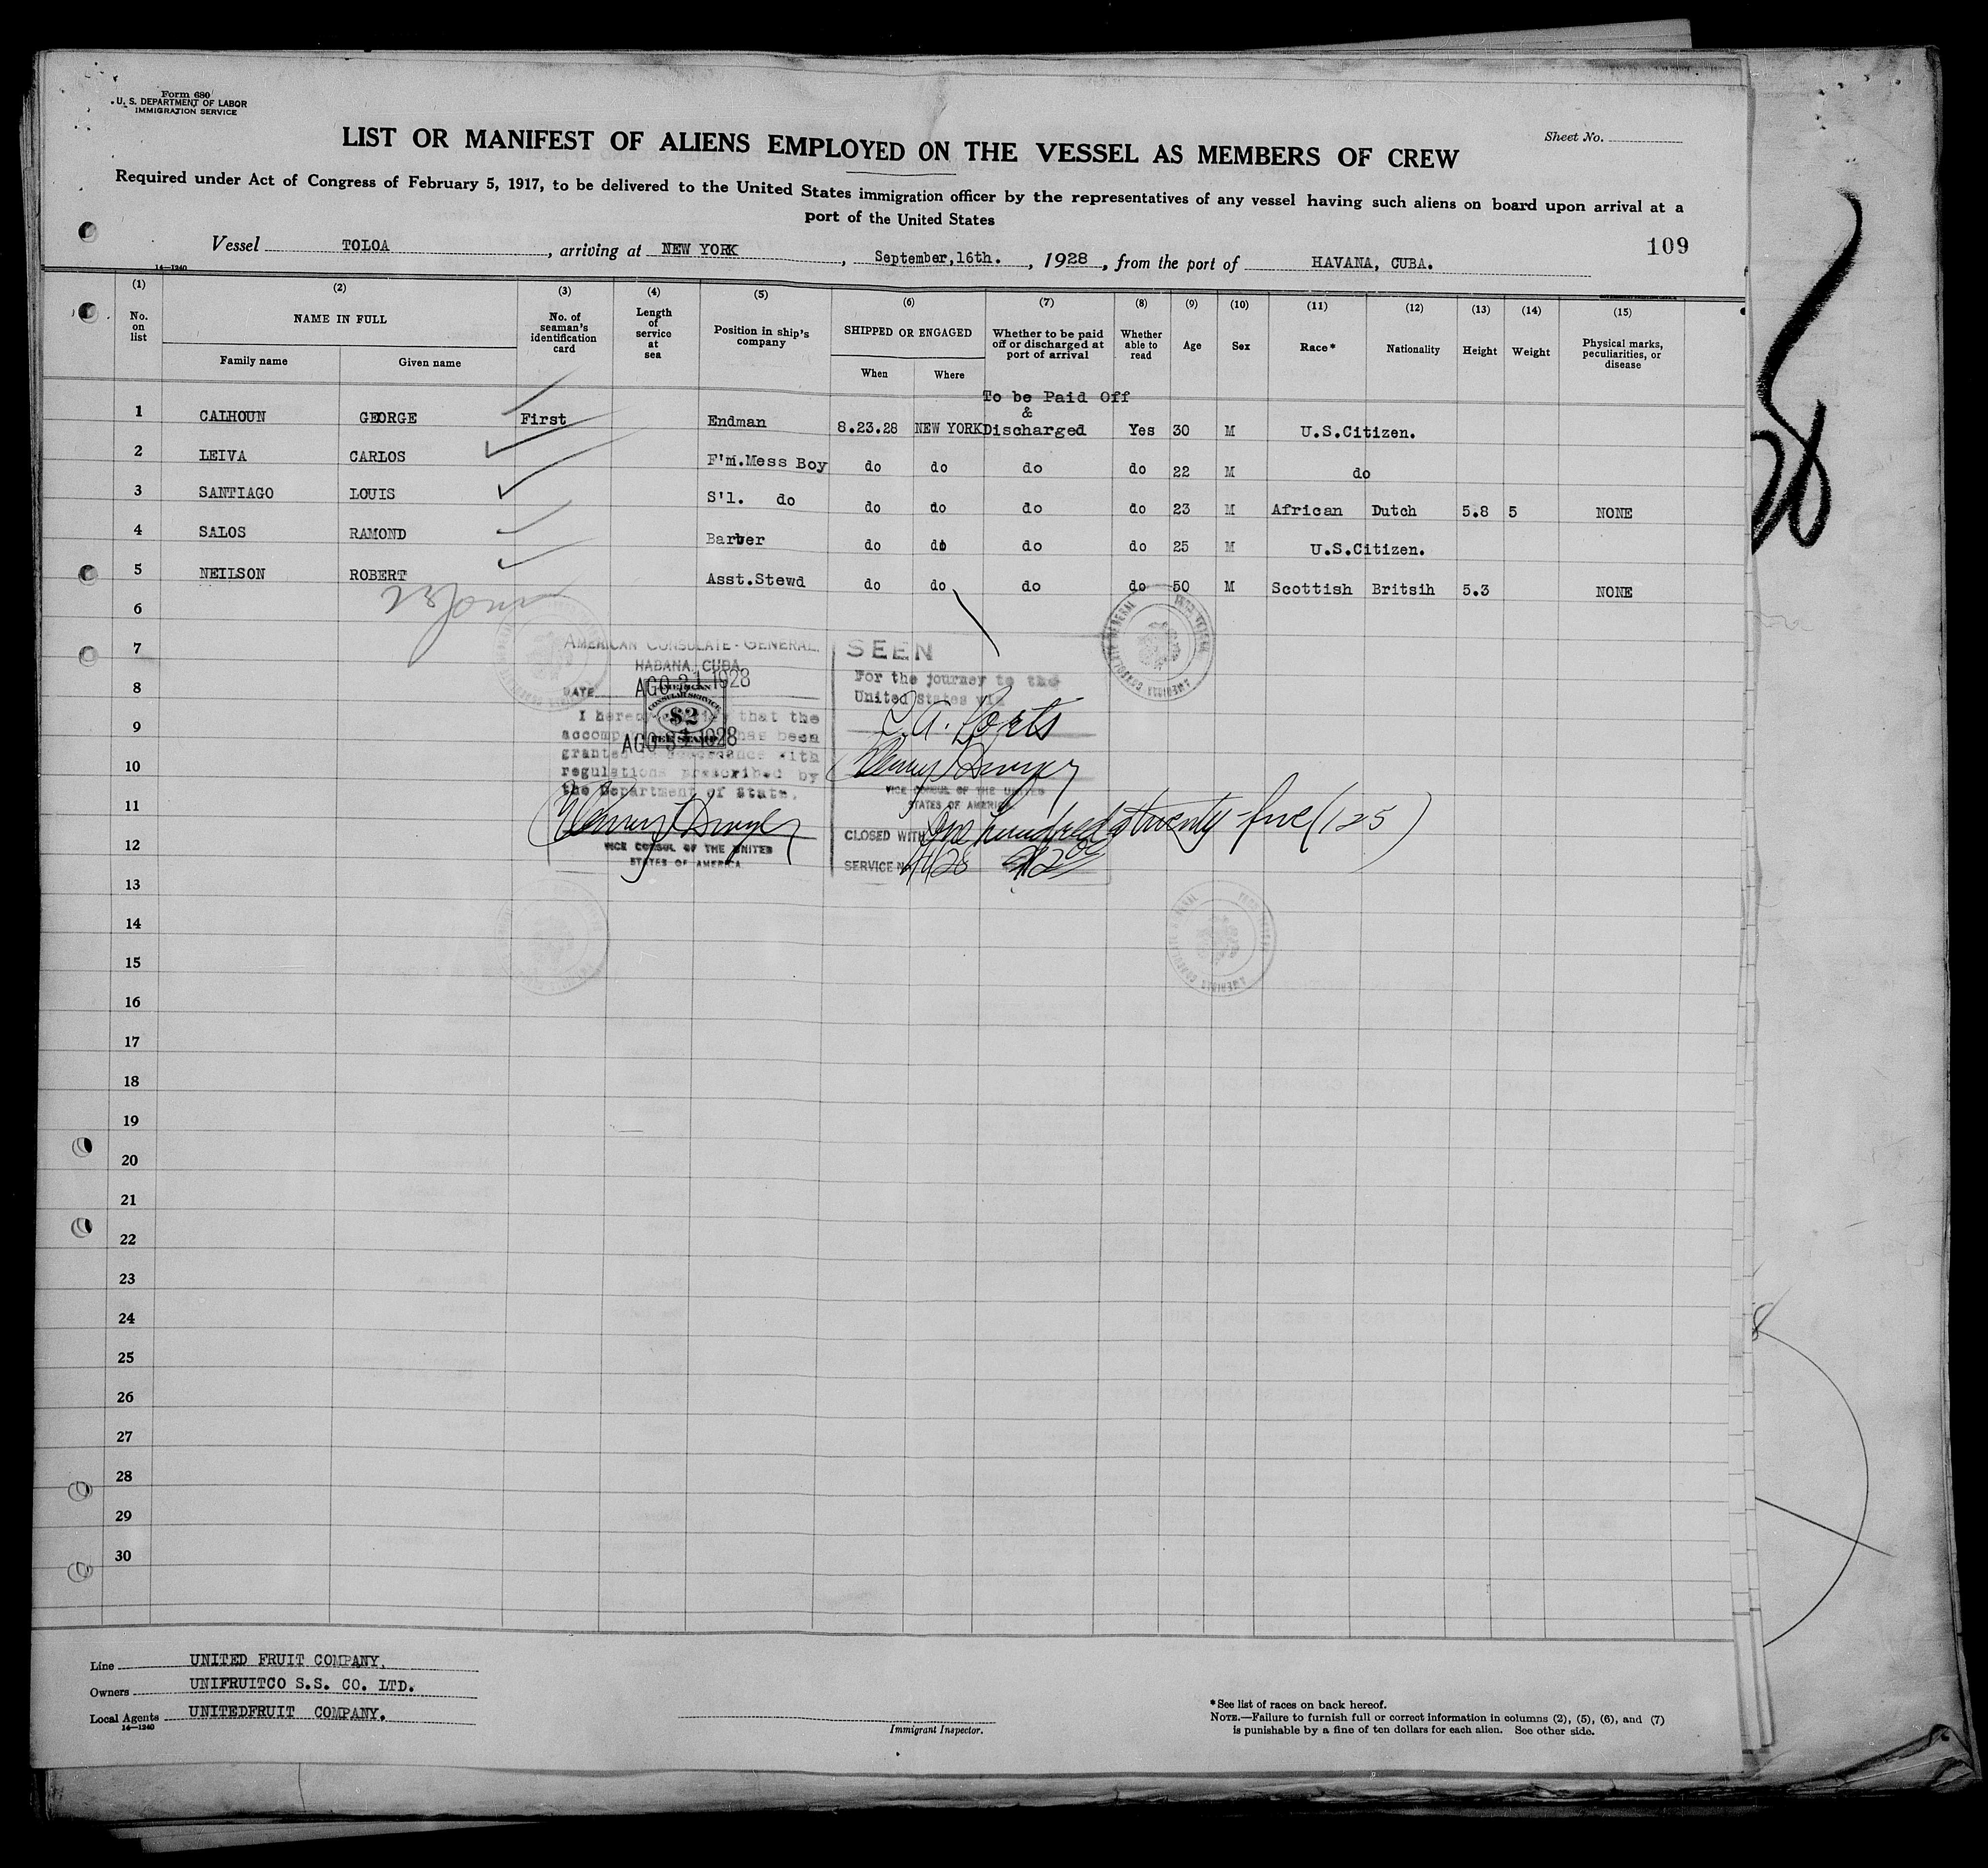 Form 680
U. S. DEPARTMENT OF LABOR
IMMIGRATION SERVICE
Sheet No.
LIST OR MANIFEST OF ALIENS EMPLOYED ON THE VESSEL AS MEMBERS OF CREW
Required under Act of Congress of February 5, 1917, to be delivered to the United States immigration officer by the representatives of any vessel having such aliens on board upon arrival at a
port of the United States
109
Vessel TOLOA, arriving at NEW YORK, September,16th., 1928, from the port of HAVANA, CUBA.
14—1240
(1) (2) (3) (4) (5) (6) (7) (8) (9) (10) (11) (12) (13) (14) (15)
No. on list
NAME IN FULL
Family name Given name
No. of seaman's identification card
Length of service at sea
Position in ship's company
SHIPPED OR ENGAGED
When Where
Whether to be paid off or discharged at port of arrival
Whether able to read
Age
Sex
Race*
Nationality
Height
Weight
Physical marks, peculiarities, or disease
To be Paid Off
&
1 CALHOUN GEORGE First Endman 8.23.28 NEW YORK Discharged Yes 30 M U.S.Citizen.
2 LEIVA CARLOS F'm.Mess Boy do do do do 22 M do
3 SANTIAGO LOUIS S'l. do do do do do 23 M African Dutch 5.8 5 NONE
4 SALOS RAMOND Barber do do do do 25 M U.S.Citizen.
5 NEILSON ROBERT Asst.Stewd do do do do 50 M Scottish Britsih 5.3 NONE
6
7
8
9
10
11
12
13
14
15
16
17
18
19
20
21
22
23
24
25
26
27
28
29
30
AMERICAN CONSULATE-GENERAL
HABANA, CUBA
DATE AGO 31 1928
AMERICAN
CONSULAR SERVICE
$2
FEE STAMP
AGO 31 1928
I hereby certify that the
accompanying has been
granted in accordance with
regulations prescribed by
the Department of State.
VICE CONSUL OF THE UNITED
STATES OF AMERICA
SEEN
For the journey to the
United States via
VICE CONSUL OF THE UNITED
STATES OF AMERICA
CLOSED WITH One hundred & twenty-five (125)
SERVICE No.
AMERICAN CONSULATE GENERAL
AMERICAN CONSULATE GENERAL
Line UNITED FRUIT COMPANY.
Owners UNIFRUITCO S.S. CO. LTD.
Local Agents UNITEDFRUIT COMPANY.
14—1240
Immigrant Inspector.
*See list of races on back hereof.
NOTE.—Failure to furnish full or correct information in columns (2), (5), (6), and (7)
is punishable by a fine of ten dollars for each alien. See other side.